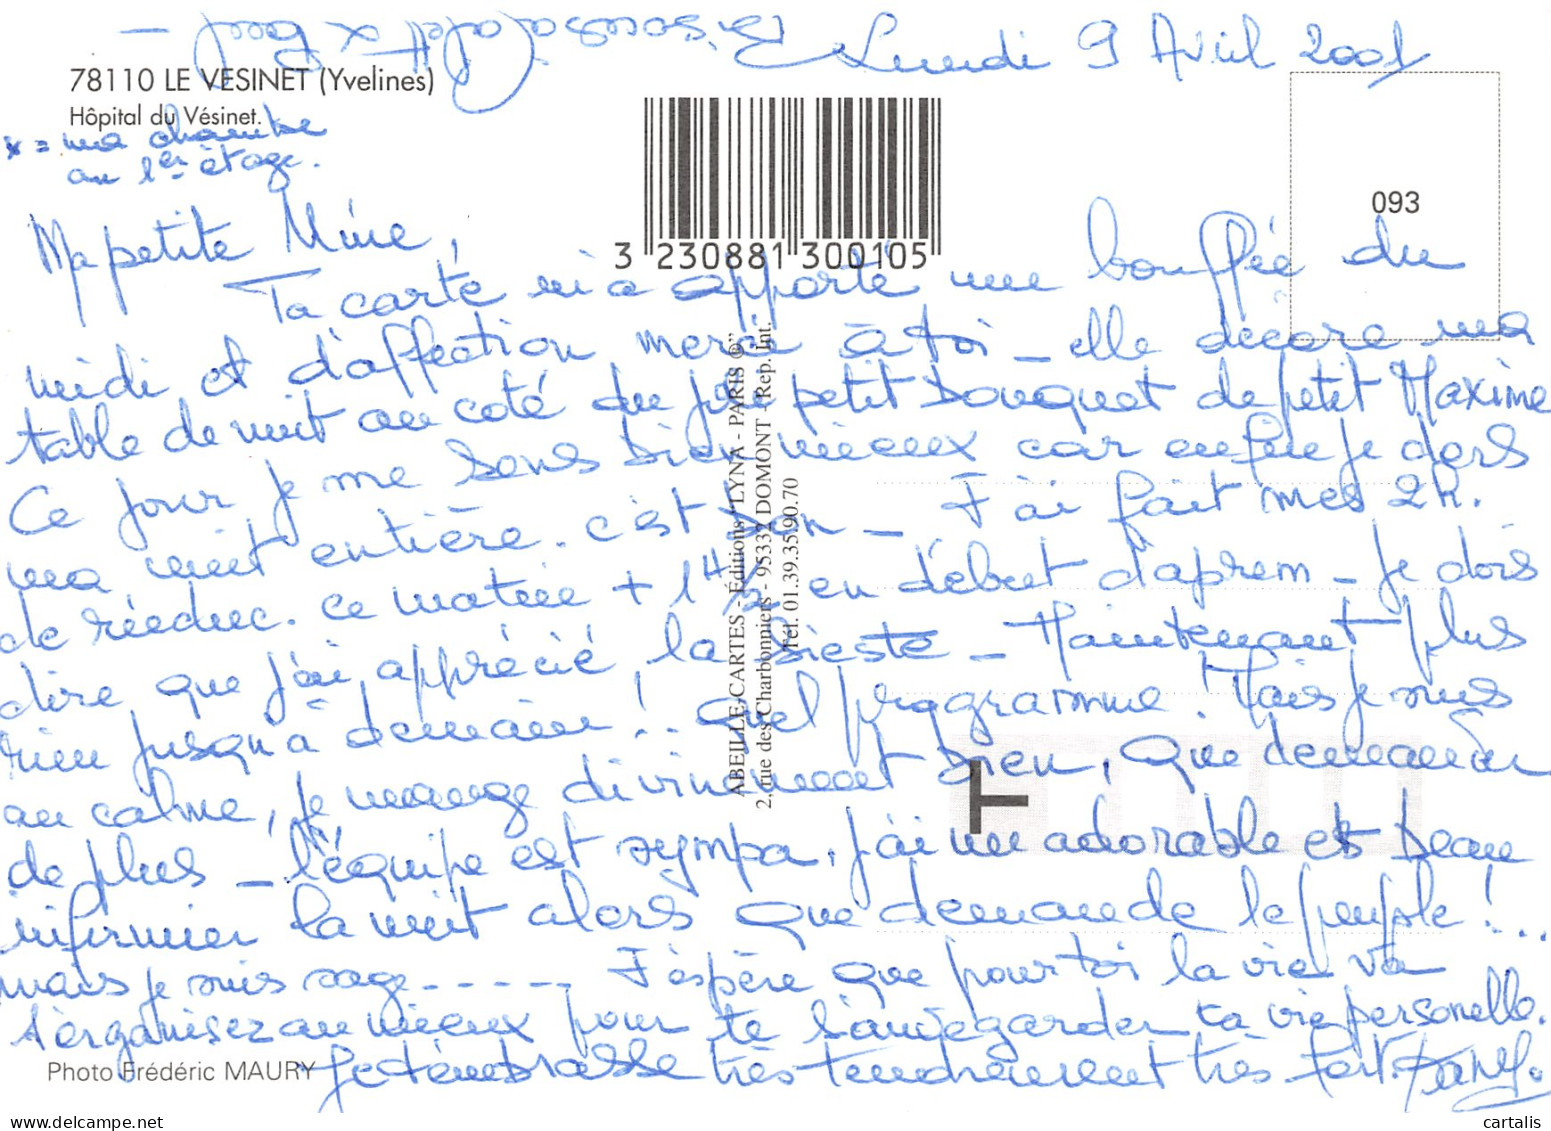 Lundi 9 Avril 2001
78110 LE VESINET (Yvelines)
Hôpital du Vésinet.
x = ma chambre
au 1er étage.
093
3 230881 300105
Ma petite Mine,
Ta carte m'a apporté une bouffée du
midi et d'affection merci à toi _ elle décore ma
table de nuit au coté du joli petit bouquet de petit Maxime
Ce jour je me sens bien mieux car enfin je dors
ma nuit entière. c'est bon _ J'ai fait mes 2h.
de rééduc. ce matin + 1h1/2 en début d'aprem _ Je dois
dire que j'ai apprécié la sieste _ Maintenant plus
rien jusqu'à demain !.. quel programme ! Mais je suis
au calme, je mange divinement bien, que demander
de plus _ l'équipe est sympa, j'ai un adorable et beau
infirmier la nuit alors que demande le peuple !...
mais je suis sage - - - - - J'espère que pour toi la vie va
s'organisez au mieux pour te sauvegarder ta vie personelle.
Je t'embrasse très tendrement très fort.
ABEILLE-CARTES - Éditions "LYNA - PARIS ®"
2, rue des Charbonniers - 95332 DOMONT - (Rep. Int.
Tél. 01.39.35.90.70
Photo Frédéric MAURY
www.delcampe.net
cartalis